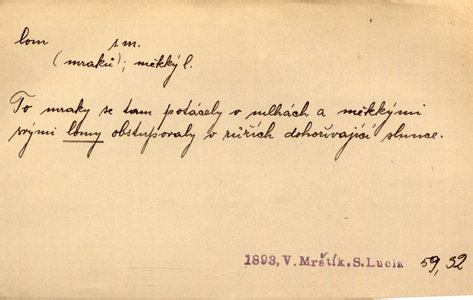 lom s m.
(mraků); měkký l.
To mraky se tam potácely v mlhách a měkkými
svými lomy obstupovaly v růžích dohořívající slunce.
1893, V. Mrštík. S. Lucia 59, 32